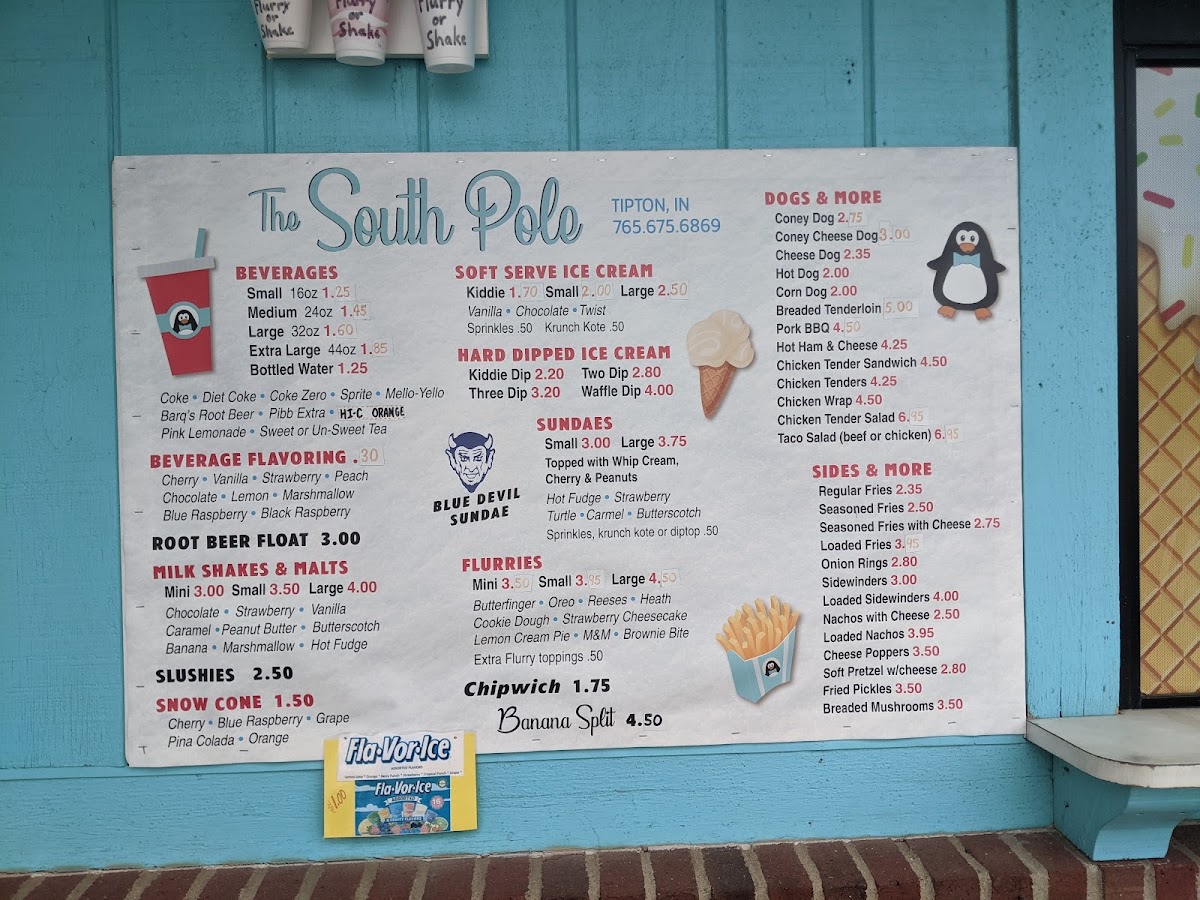 Flurry
or
Shake
Flurry
or
Shake
Flurry
or
Shake
The South Pole
TIPTON, IN
765.675.6869
BEVERAGES
Small 16oz 1.25
Medium 24oz 1.45
Large 32oz 1.60
Extra Large 44oz 1.85
Bottled Water 1.25
Coke • Diet Coke • Coke Zero • Sprite • Mello-Yello
Barq's Root Beer • Pibb Extra • HI-C ORANGE
Pink Lemonade • Sweet or Un-Sweet Tea
BEVERAGE FLAVORING .30
Cherry • Vanilla • Strawberry • Peach
Chocolate • Lemon • Marshmallow
Blue Raspberry • Black Raspberry
ROOT BEER FLOAT 3.00
MILK SHAKES & MALTS
Mini 3.00 Small 3.50 Large 4.00
Chocolate • Strawberry • Vanilla
Caramel • Peanut Butter • Butterscotch
Banana • Marshmallow • Hot Fudge
SLUSHIES 2.50
SNOW CONE 1.50
Cherry • Blue Raspberry • Grape
Pina Colada • Orange
SOFT SERVE ICE CREAM
Kiddie 1.70 Small 2.00 Large 2.50
Vanilla • Chocolate • Twist
Sprinkles .50 Krunch Kote .50
HARD DIPPED ICE CREAM
Kiddie Dip 2.20 Two Dip 2.80
Three Dip 3.20 Waffle Dip 4.00
SUNDAES
Small 3.00 Large 3.75
Topped with Whip Cream,
Cherry & Peanuts
Hot Fudge • Strawberry
Turtle • Carmel • Butterscotch
Sprinkles, krunch kote or diptop .50
BLUE DEVIL
SUNDAE
FLURRIES
Mini 3.50 Small 3.95 Large 4.50
Butterfinger • Oreo • Reeses • Heath
Cookie Dough • Strawberry Cheesecake
Lemon Cream Pie • M&M • Brownie Bite
Extra Flurry toppings .50
Chipwich 1.75
Banana Split 4.50
DOGS & MORE
Coney Dog 2.75
Coney Cheese Dog 3.00
Cheese Dog 2.35
Hot Dog 2.00
Corn Dog 2.00
Breaded Tenderloin 5.00
Pork BBQ 4.50
Hot Ham & Cheese 4.25
Chicken Tender Sandwich 4.50
Chicken Tenders 4.25
Chicken Wrap 4.50
Chicken Tender Salad 6.95
Taco Salad (beef or chicken) 6.95
SIDES & MORE
Regular Fries 2.35
Seasoned Fries 2.50
Seasoned Fries with Cheese 2.75
Loaded Fries 3.95
Onion Rings 2.80
Sidewinders 3.00
Loaded Sidewinders 4.00
Nachos with Cheese 2.50
Loaded Nachos 3.95
Cheese Poppers 3.50
Soft Pretzel w/cheese 2.80
Fried Pickles 3.50
Breaded Mushrooms 3.50
Fla·Vor·Ice
$1.00
Fla·Vor·Ice
ASSORTED
16